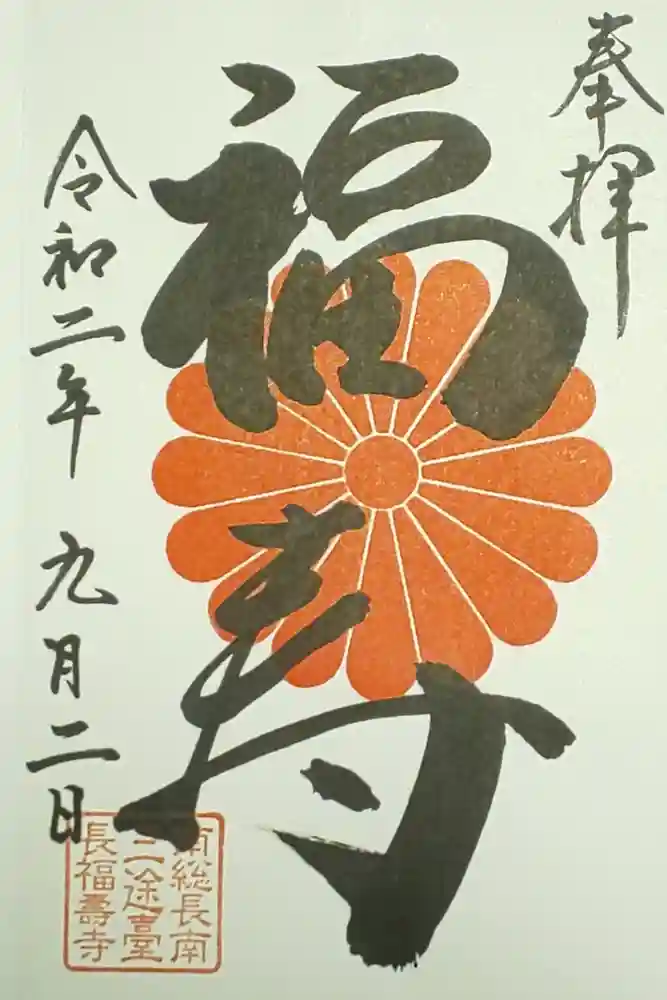 奉拝
福寿
令和二年 九月二日
南総長南
三途臺
長福壽寺